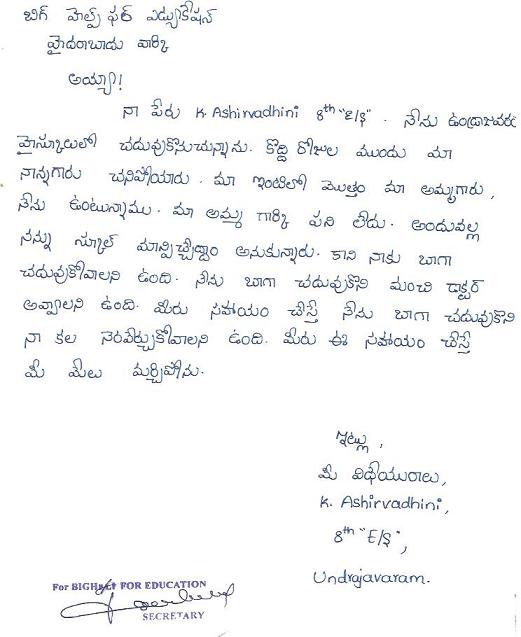 బిగ్ హెల్ప్ ఫర్ ఎడ్యుకేషన్
హైదరాబాదు వారికి
అయ్యా!
నా పేరు K. Ashirvadhini 8th "E/S". నేను ఉండ్రాజవరం
హైస్కూలులో చదువుకొనుచున్నాను. కొద్ది రోజుల ముందు మా
నాన్నగారు చనిపోయారు. మా ఇంటిలో మొత్తం మా అమ్మగారు,
నేను ఉంటున్నాము. మా అమ్మ గార్కి పని లేదు. అందువల్ల
నన్ను స్కూల్ మాన్పిచ్చేద్దాం అనుకున్నారు. కాని నాకు బాగా
చదువుకోవాలని ఉంది. నేను బాగా చదువుకొని మంచి డాక్టర్
అవ్వాలని ఉంది. మీరు సహాయం చేస్తే నేను బాగా చదువుకొని
నా కల నెరవేర్చుకోవాలని ఉంది. మీరు ఈ సహాయం చేస్తే
మీ మేలు మర్చిపోను.
ఇట్లు,
మీ విధేయురాలు,
K. Ashirvadhini,
8th "E/S",
Undrajavaram.
For BIGHELP FOR EDUCATION
SECRETARY